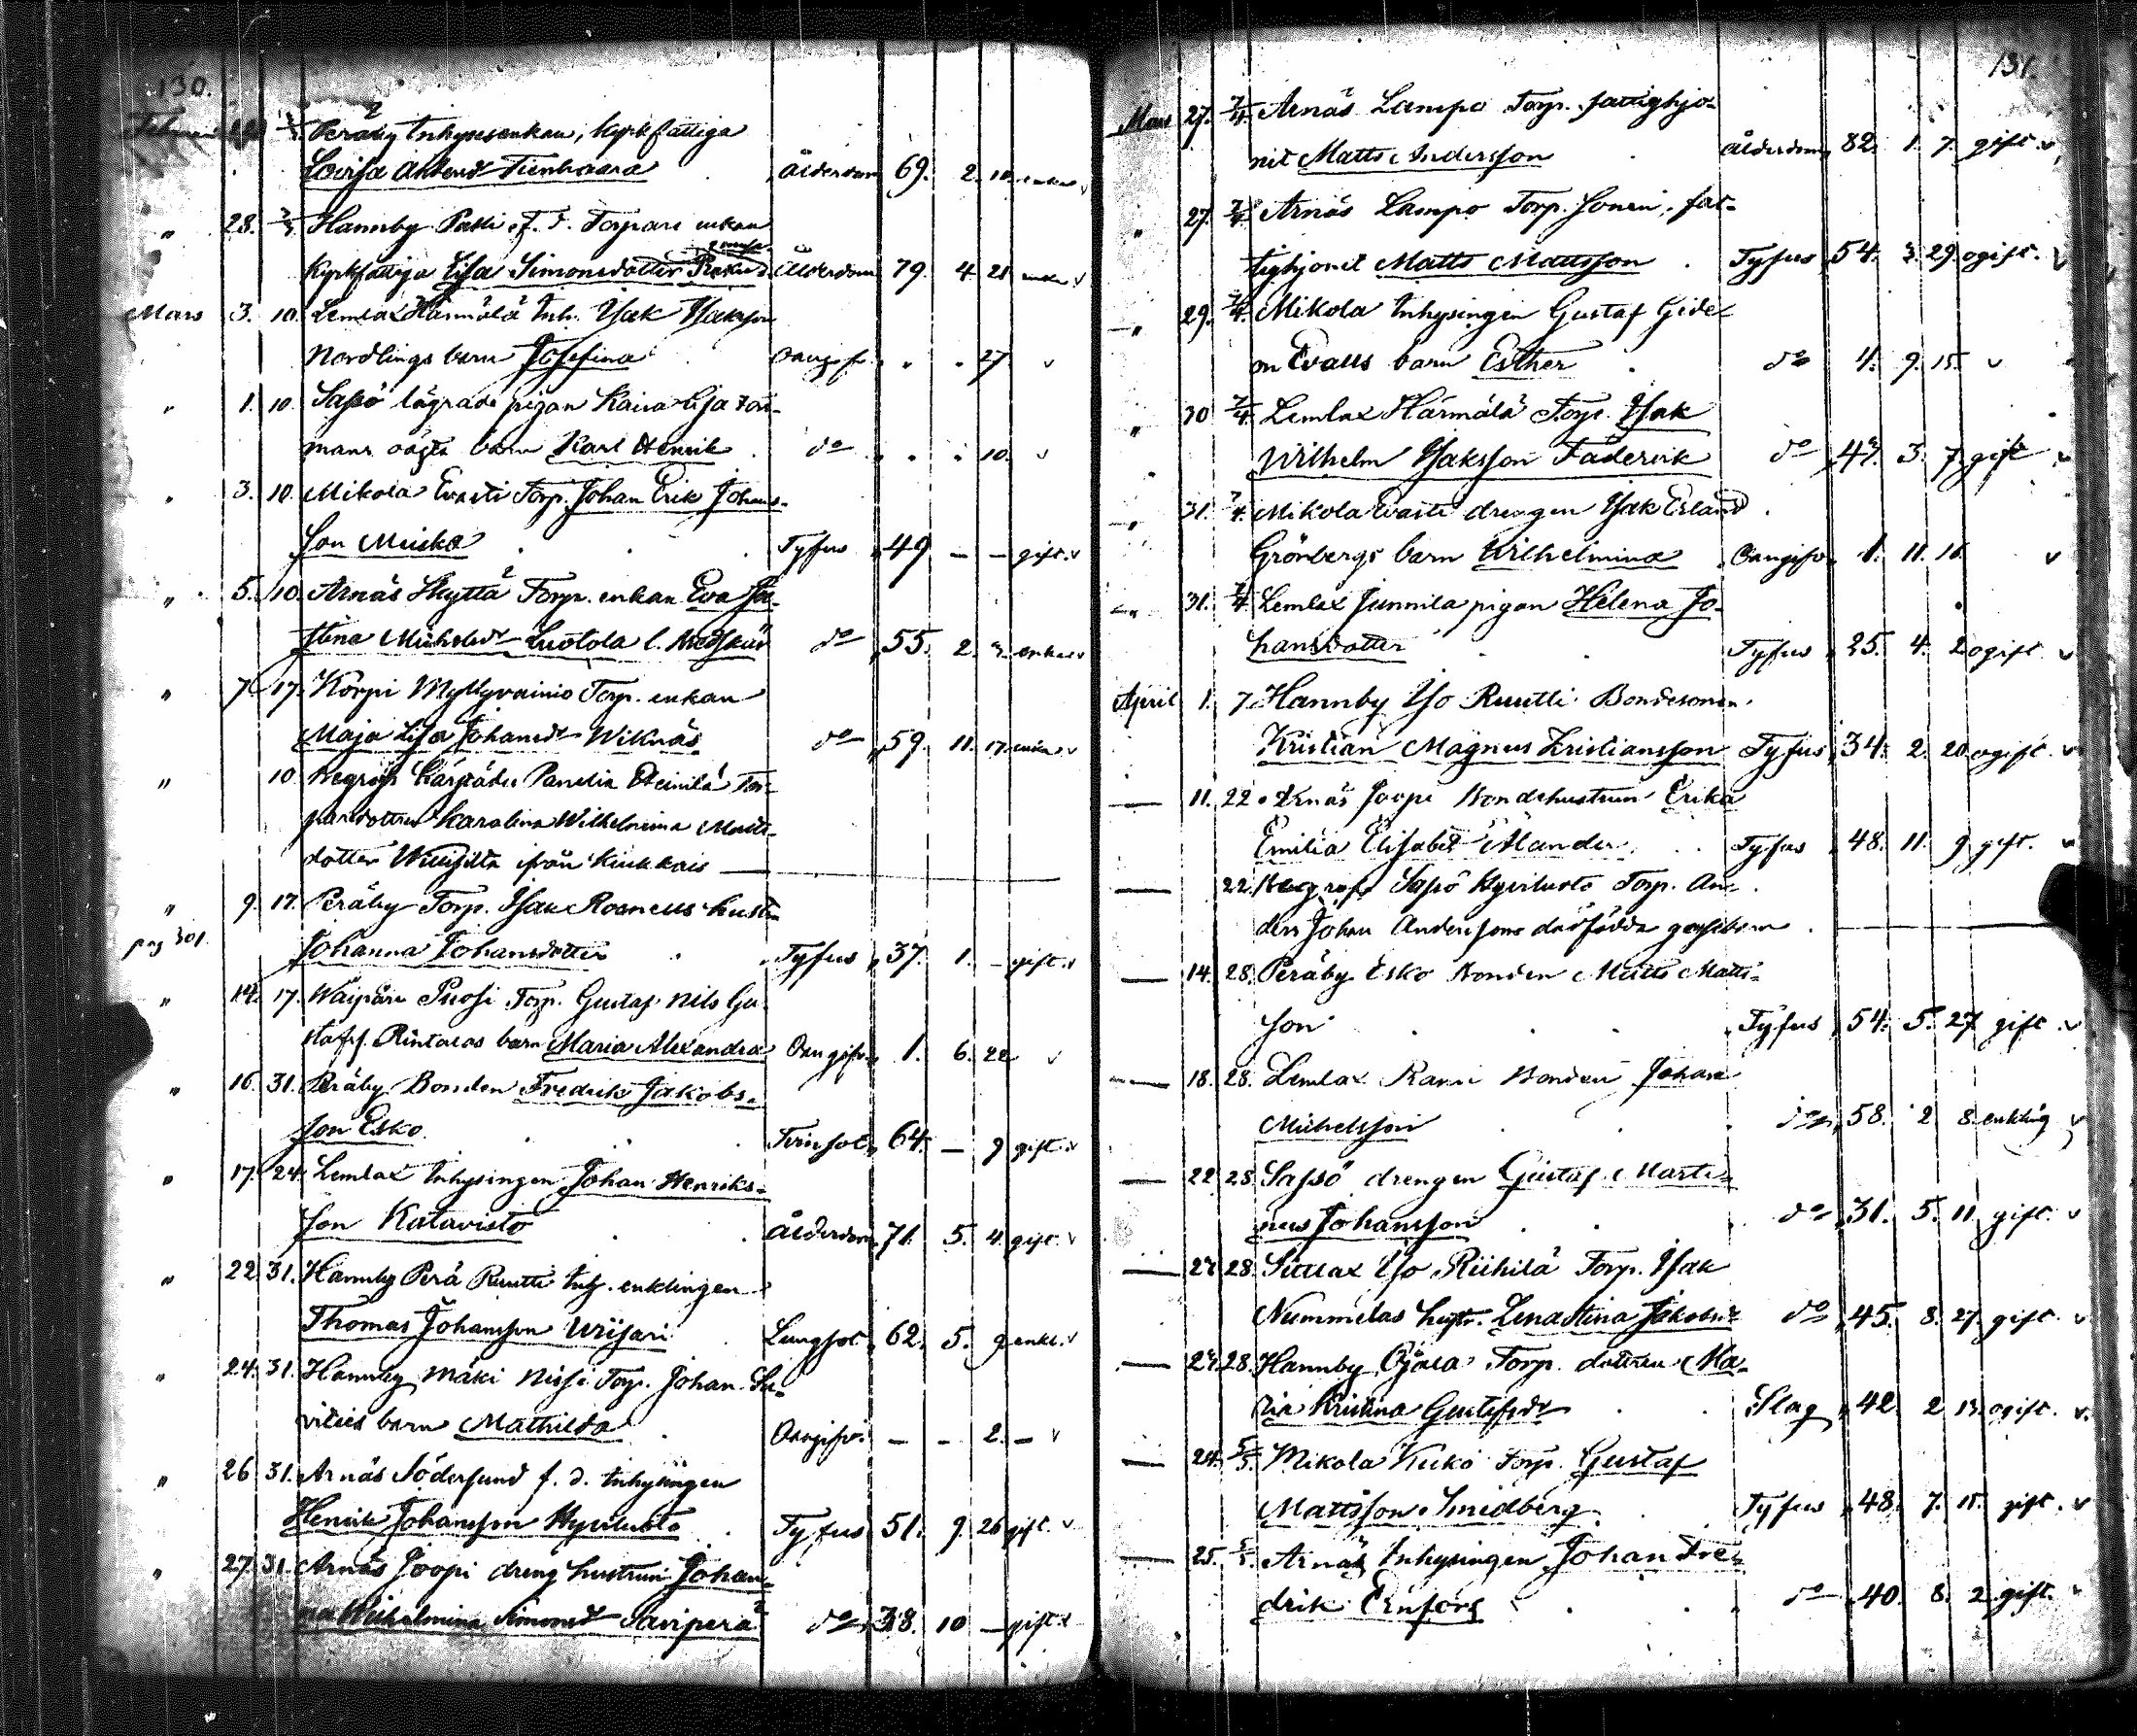 130.
Februari 3/3 Peräby Inhysesenkan, kyrkfattiga
Lovisa Tienhaara Ålderdom 69. 2. 10. enka v
" 28. 3/3 Hannby Pakki f. d. Torpare enkan
Kyrkfattiga Lisa Simonsdotter Ålderdom 79. 4 28 enka v
Mars 3. 10. Lemlax Härmälä Inh. Isak Isaksson
Nordlings barn Josefina Oangifv. . . 27 v
" 1. 10. Sapsö lägrade pigan Kaisa Lisa
mans oägta barn Karl Henrik do . . 10. v
" 3. 10. Mikola Evasti Torp. Johan Erik Johans-
son Muska Tyfus 49 — — gift. v
" 5. 10. Arnäs Skyttä Torp. enkan Eva Ju-
stina Michelsdr Luotola l. Do 55. 2. enka v
" 7. 17. Korpi Myllyvainio Torp. enkan
Maja Lisa Johansdr Wiknäs do 59. 11. 17. enka v
" 10. Begrofs Panelia Heinilä Tor-
paredottren Karolina Wilhelmina Matts-
dotter ifrån Kiukkais —
" 9. 17. Peräby Torp. Isak Rosnells hustru
pag 301. Johanna Johansdotter Tyfus 37. 1. — gift. v
" 14. 17. Torp. Gustaf Nils Gu-
stafs. Rintalas barn Maria Alexandra Oangifv. 1. 6. 22 v
" 16. 31. Peräby Bonden Fredrik Jakobs-
son Esko 64. — 9 gift. v
" 17. 24. Lemlax Inhysingen Johan Henriks-
son Katavisto Ålderdom 71. 5. 4. gift. v
" 22. 31. Hannby Perä Ruutti Inh. enklingen
Thomas Johansson Lungsot 62. 5. 9 enkl. v
" 24. 31. Hannby Mäki Nissi Torp. Johan
barn Mathilda Oangifv. — — 2. — v
" 26 31. Arnäs Södersund f. d. Inhysingen
Henrik Johansson Hyviluoto Tyfus 51. 9. 26 gift. v
" 27. 31. Arnäs Joopi dreng hustrun Johan-
na Wilhelmina Simonsdr Saviperä do 38. 10 — gift. v
131.
Mars 27. 7/4 Arnäs Lampo Torp. fattighjo-
net Matts Andersson Ålderdom 82. 1. 7. gift. v
" 27. 7/4 Arnäs Lampo Torp. sonen, fat-
tighjonet Matts Mattsson Tyfus 54. 3. 29 ogift. v
" 29. 7/4 Mikola Inhysingen Gustaf Gide-
on Evalls barn Esther do 4. 9. 15. v
" 30 7/4 Lemlax Härmälä Torp. Isak
Wilhelm Isaksson Fädervik do 47. 3. 7 gift v
" 31. 7/4 Mikola Evasti drengen Isak Erland
Grönbergs barn Wilhelmina Oangifv. 1. 11. 16. v
" 31. 7/4 Lemlax Junnila pigan Helena Jo-
hansdotter Tyfus 25. 4. 2 ogift v
April 1. 7. Hannby Iso Ruutti Bondesonen
Kristian Magnus Kristiansson Tyfus 34. 2. 20 ogift. v
— 11. 22. Arnäs Joopi Bondehustrun Erika
Emilia Elisabet Ålander Tyfus 48. 11. 9 gift. v
— 22. Begrofs Sapsö Hyviluoto Torp. An-
ders Johan Anderssons dödfödda gossebarn —
— 14. 28. Peräby Esko Bonden Matts Matts-
son Tyfus 54. 5. 27 gift. v
— 18. 28. Lemlax Bonden Johan
Michelsson do 58. 2 8 enkling v
— 22 28. Sapsö drengen Gustaf Marti-
nus Johansson do 31. 5. 11 gift. v
— 28. Iso Riihilä Torp. Isak
Nummelas hustr. Lena Stina Jakobsdr do 45. 8. 27. gift. v
— 28. Hannby Ojala Torp. dottren Ma-
ria Kristina Gustafsdr Slag 42. 2 13. ogift. v.
— 24. 5/5. Mikola Torp. Gustaf
Mattsson Smidberg Tyfus 48. 7. 15. gift. v
— 25. 5/5. Arnäs Inhysingen Johan Fre-
drik Enfors do 40. 8. 2 gift. v